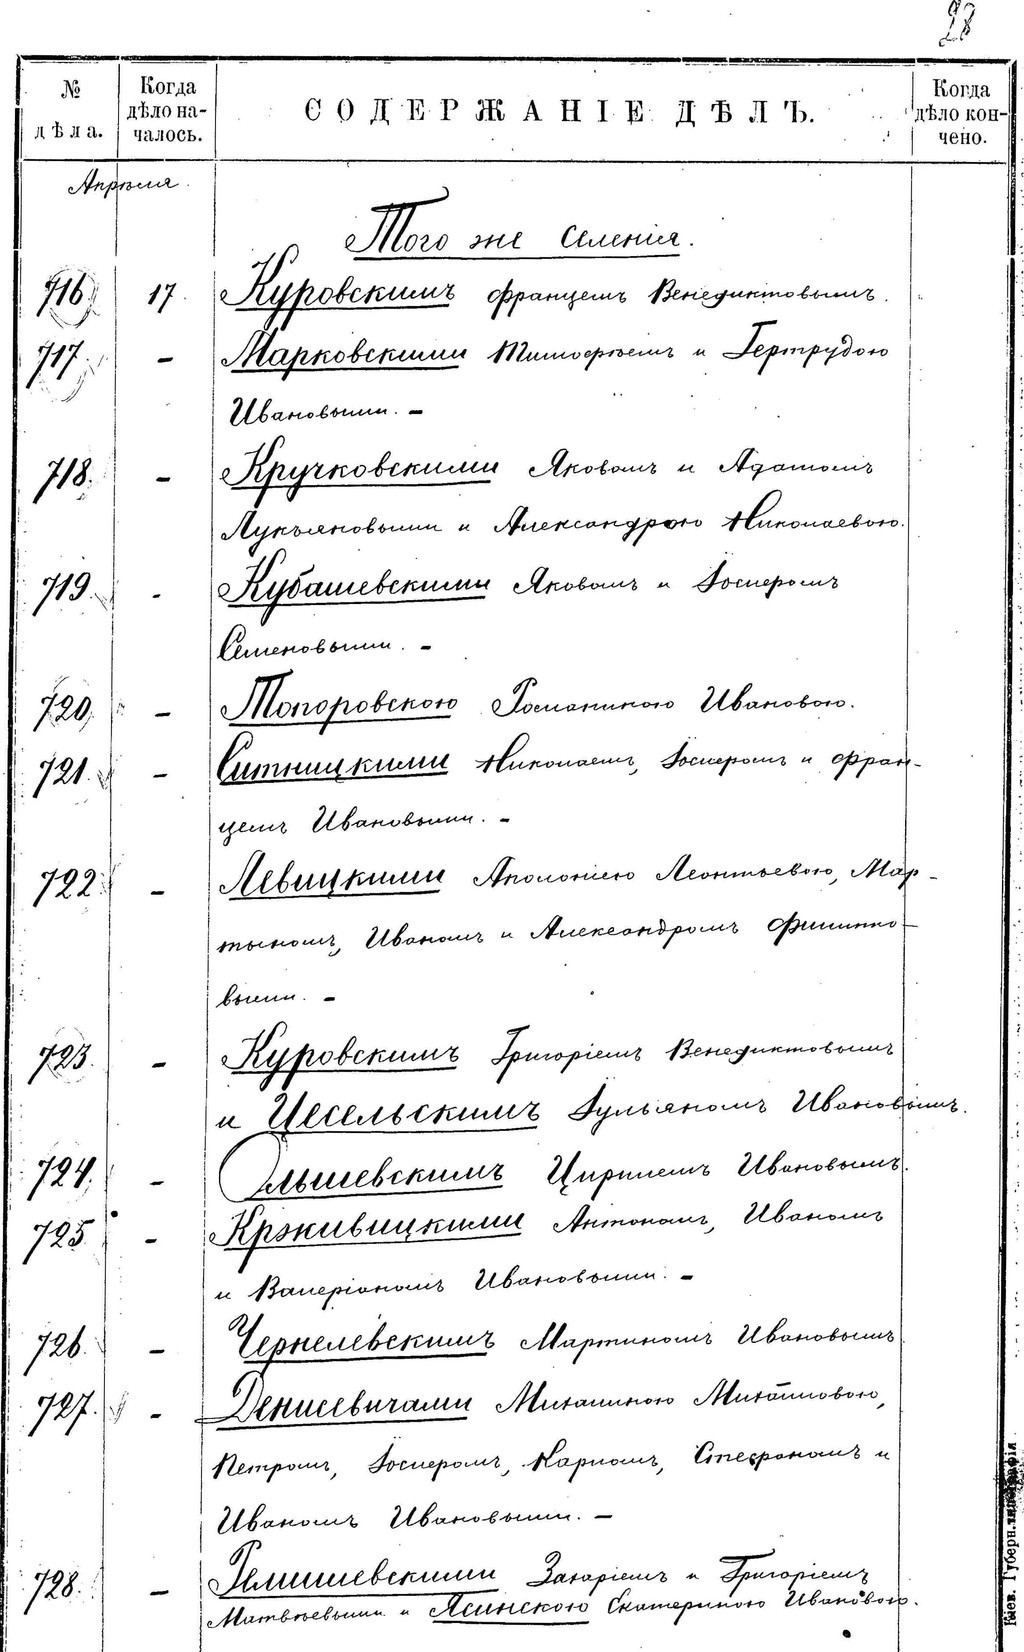 28
№ дѣла.
Когда дѣло началось.
СОДЕРЖАНІЕ ДѢЛЪ.
Когда дѣло кончено.
Апрѣля.
Того же селенія.
716 17. Куровскимъ Францемъ Венедиктовымъ.
717. – Марковскими Тимофѣемъ и Гертрудою
Ивановыми. –
718. – Кручковскими Яковомъ и Адамомъ
Лукьяновыми и Александрою Николаевою.
719. - Кубашевскими Яковомъ и Іосифомъ
Семеновыми. –
720. – Топоровскою Романиною Ивановою.
721. – Ситницкими Николаемъ, Іосифомъ и Фран-
цемъ Ивановыми. –
722. – Левицкими Аполоніею Леонтьевою, Мар-
тыномъ, Иваномъ и Александромъ Филиппо-
выми. –
723. – Куровскимъ Григоріемъ Венедиктовымъ
и Цесельскимъ Іульяномъ Ивановымъ.
724. – Ольшевскимъ Цирилемъ Ивановымъ.
725 – Крживицкими Антономъ, Иваномъ
и Валеріаномъ Ивановыми. –
726. – Чернелевскимъ Мартиномъ Ивановымъ
727. – Денисевичами Михалиною Михайловою,
Петромъ, Іосифомъ, Карломъ, Стефаномъ и
Иваномъ Ивановыми. –
728. – Гемишевскими Захаріемъ и Григоріемъ
Матвѣевыми и Ясинскою Екатериною Ивановою.
Кіев. Губерн. типографія